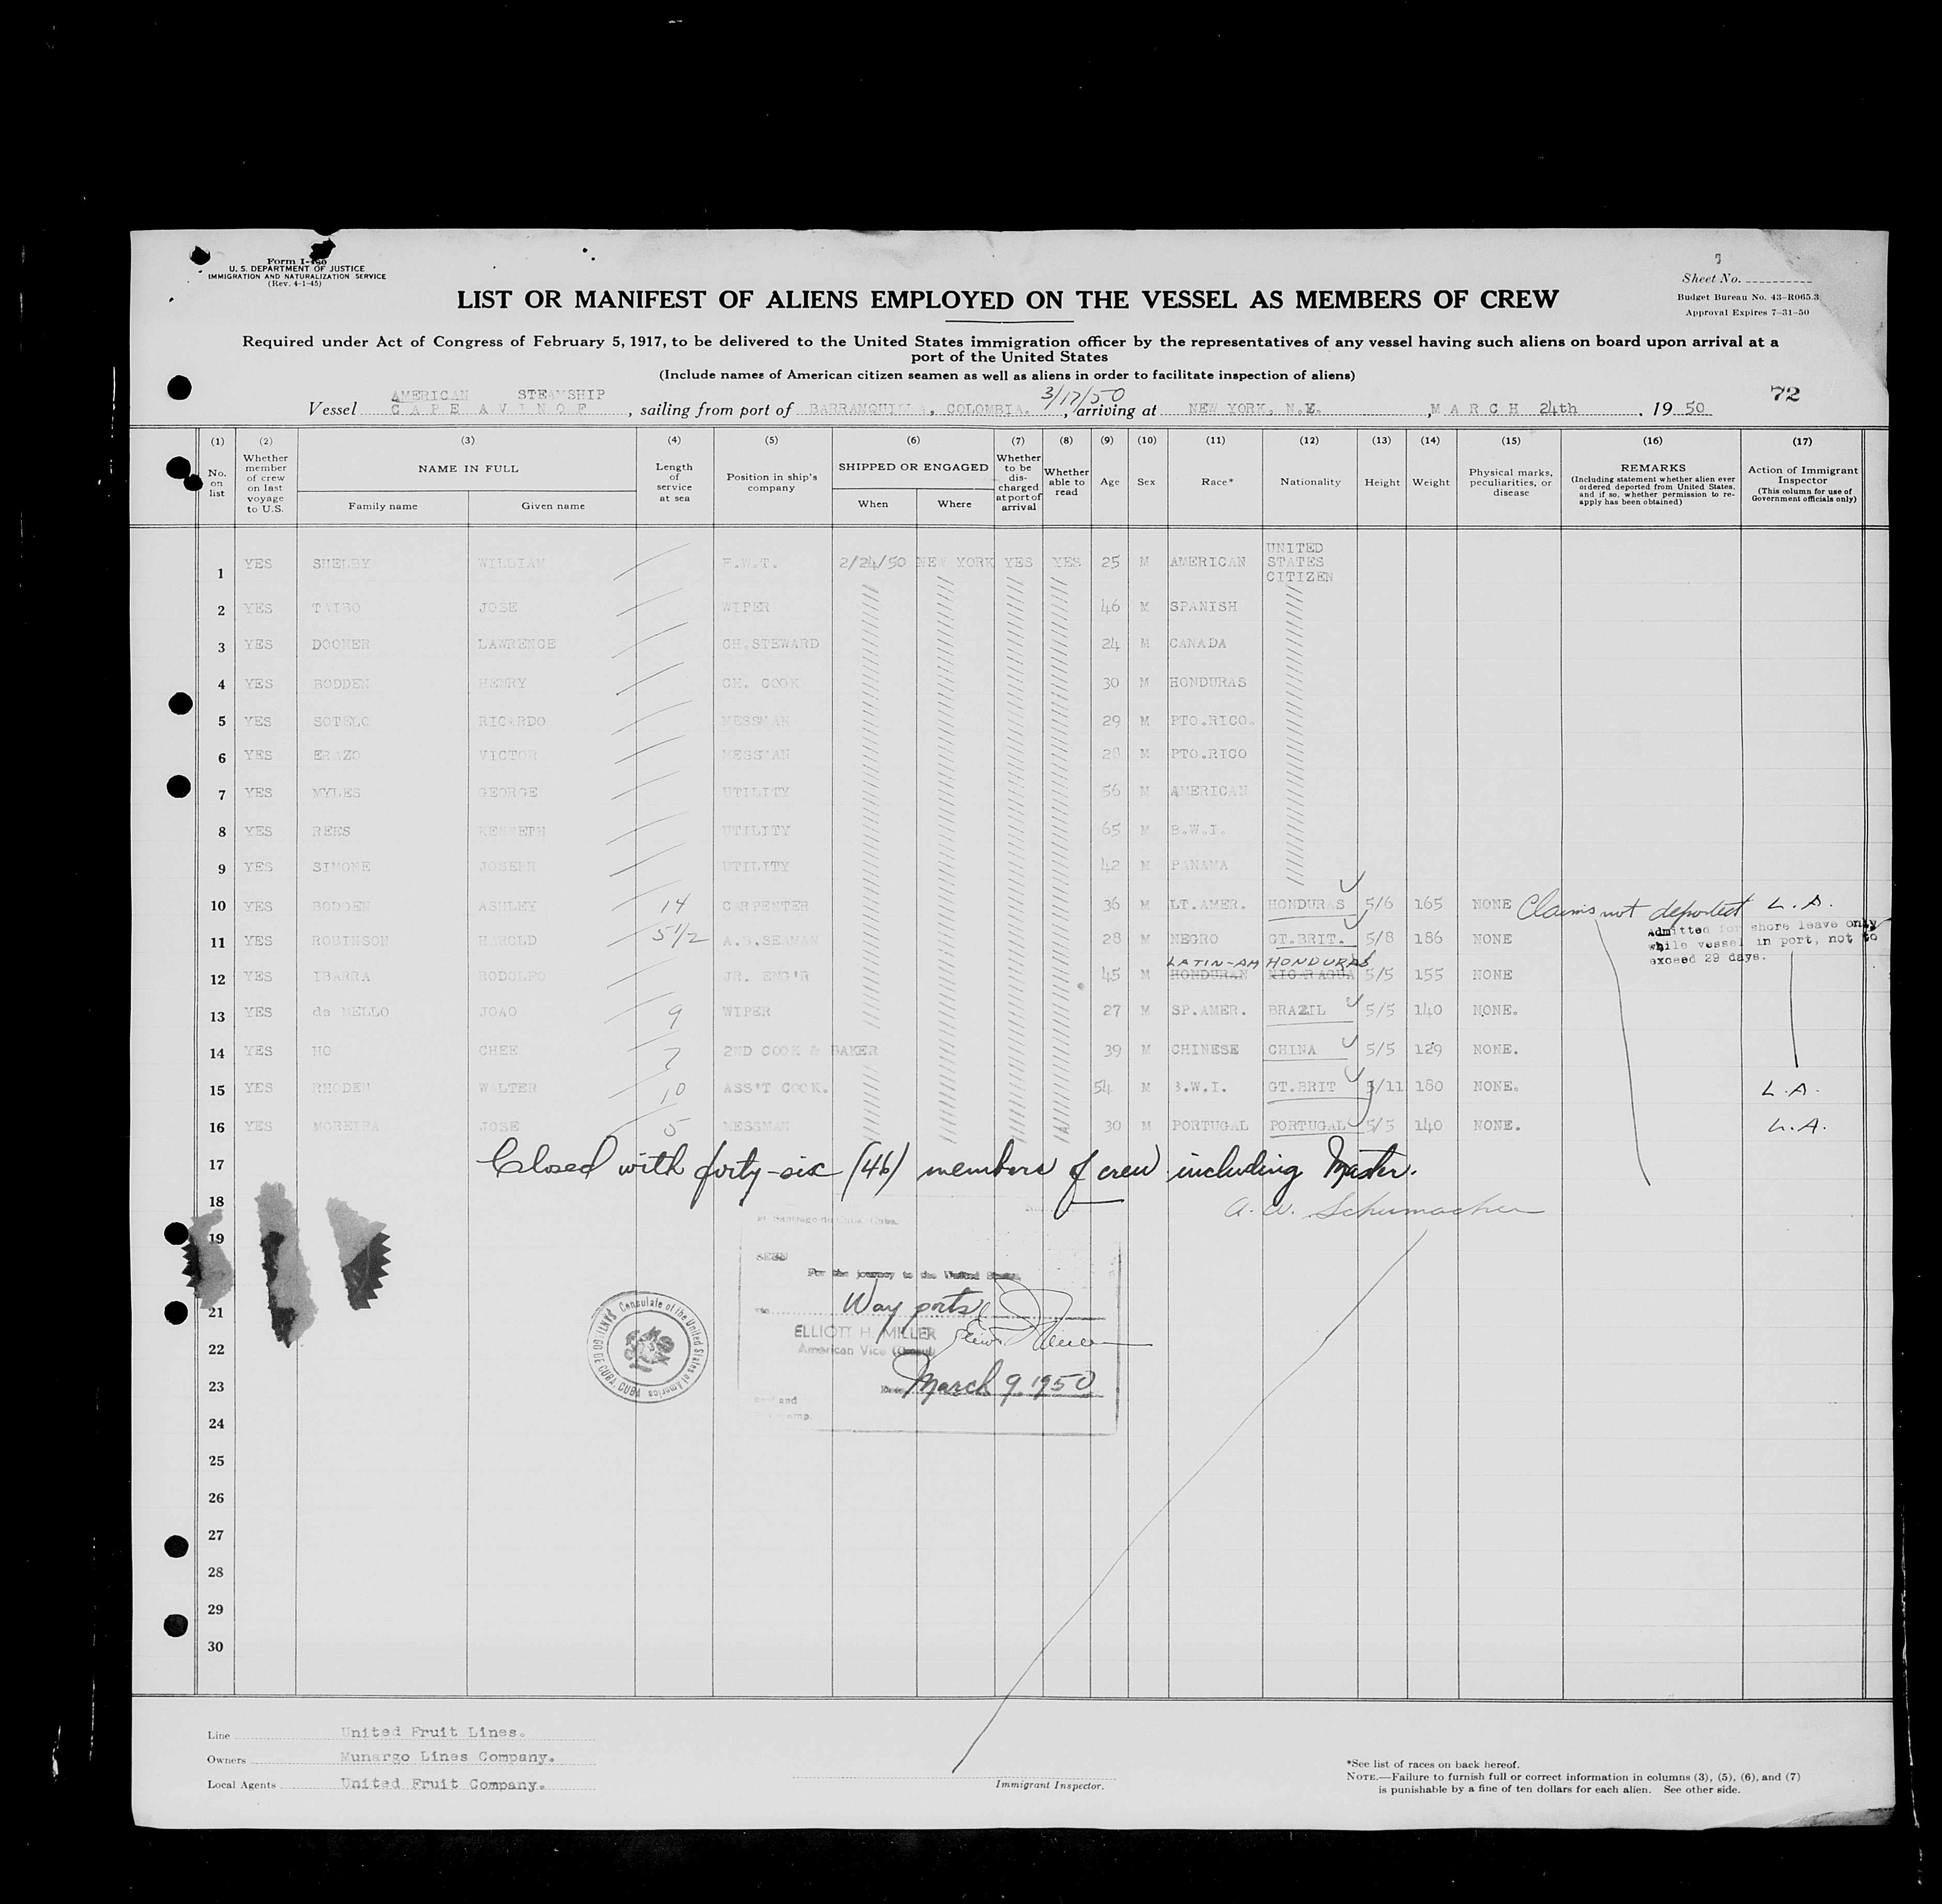 Form I-480
U. S. DEPARTMENT OF JUSTICE
IMMIGRATION AND NATURALIZATION SERVICE
(Rev. 4-1-45)
Sheet No.
Budget Bureau No. 43-R065.3
Approval Expires 7-31-50
LIST OR MANIFEST OF ALIENS EMPLOYED ON THE VESSEL AS MEMBERS OF CREW
Required under Act of Congress of February 5, 1917, to be delivered to the United States immigration officer by the representatives of any vessel having such aliens on board upon arrival at a
port of the United States
(Include names of American citizen seamen as well as aliens in order to facilitate inspection of aliens)
72
AMERICAN STEAMSHIP 3/17/50
Vessel CAPE AVINOF, sailing from port of BARRANQUILLA, COLOMBIA., arriving at NEW YORK, N.Y., MARCH 24th, 19 50
(1) (2) (3) (4) (5) (6) (7) (8) (9) (10) (11) (12) (13) (14) (15) (16) (17)
No. on list
Whether member of crew on last voyage to U.S.
NAME IN FULL
Family name
Given name
Length of service at sea
Position in ship's company
SHIPPED OR ENGAGED
When
Where
Whether to be discharged at port of arrival
Whether able to read
Age
Sex
Race*
Nationality
Height
Weight
Physical marks, peculiarities, or disease
REMARKS
(Including statement whether alien ever ordered deported from United States, and if so, whether permission to reapply has been obtained)
Action of Immigrant Inspector
(This column for use of Government officials only)
1 YES SHELBY WILLIAM F.W.T. 2/24/50 NEW YORK YES YES 25 M AMERICAN UNITED STATES CITIZEN
2 YES TAIBO JOSE WIPER 46 M SPANISH
3 YES DOONER LAWRENCE CH.STEWARD 24 M CANADA
4 YES BODDEN HENRY CH. COOK 30 M HONDURAS
5 YES SOTELO RICARDO MESSMAN 29 M PTO.RICO.
6 YES ERAZO VICTOR MESSMAN 28 M PTO.RICO
7 YES MYLES GEORGE UTILITY 56 M AMERICAN
8 YES REES KENNETH UTILITY 65 M B.W.I.
9 YES SIMONE JOSEPH UTILITY 42 M PANAMA
10 YES BODDEN ASHLEY 14 CARPENTER 36 M LT.AMER. HONDURAS 5/6 165 NONE Claims not deported L.A.
11 YES ROBINSON HAROLD 5 1/2 A.B.SEAMAN 28 M NEGRO GT.BRIT. 5/8 186 NONE
Admitted for shore leave only
while vessel in port, not to
exceed 29 days.
LATIN-AM HONDURAS
12 YES IBARRA RODOLFO JR. ENG'R 45 M HONDURAN NICARAGUA 5/5 155 NONE
13 YES de MELLO JOAO 9 WIPER 27 M SP.AMER. BRAZIL 5/5 140 NONE.
14 YES HO CHEE 7 2ND COOK & BAKER 39 M CHINESE CHINA 5/5 129 NONE.
15 YES RHODEN WALTER 10 ASS'T COOK. 54 M B.W.I. GT.BRIT 5/11 180 NONE. L.A.
16 YES MOREIRA JOSE 5 MESSMAN 30 M PORTUGAL PORTUGAL 5/5 140 NONE. L.A.
17 Closed with forty-six (46) members of crew including Master.
18 A. W. Schumacher
at Santiago de Cuba, Cuba.
19
SEEN
For the journey to the United States.
21 via Way ports
ELLIOTT H. MILLER
22 American Vice Consul
23 Date March 9, 1950
Consulate of the United States of America
SANTIAGO DE CUBA, CUBA
24
25
26
27
28
29
30
Line United Fruit Lines.
Owners Munargo Lines Company.
Local Agents United Fruit Company.
Immigrant Inspector.
*See list of races on back hereof.
NOTE.—Failure to furnish full or correct information in columns (3), (5), (6), and (7)
is punishable by a fine of ten dollars for each alien. See other side.